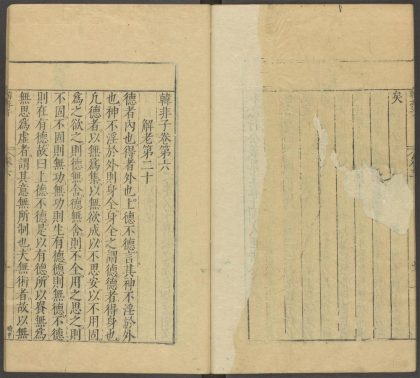 矣
韓非子卷第六
解老第二十
德者内也得者外也上德不德言其神不淫於外
也神不淫於外則身全身全之謂德德者得身也
凡德者以無爲集以無欲成以不思安以不用固
爲之欲之則德無舍德無舍則不全用之思之則
不固不固則無功無功則生有德德則無德不德
則在有德故曰上德不德是以有德所以貴無爲
無思爲虛者謂其意無所制也夫無術者故以無